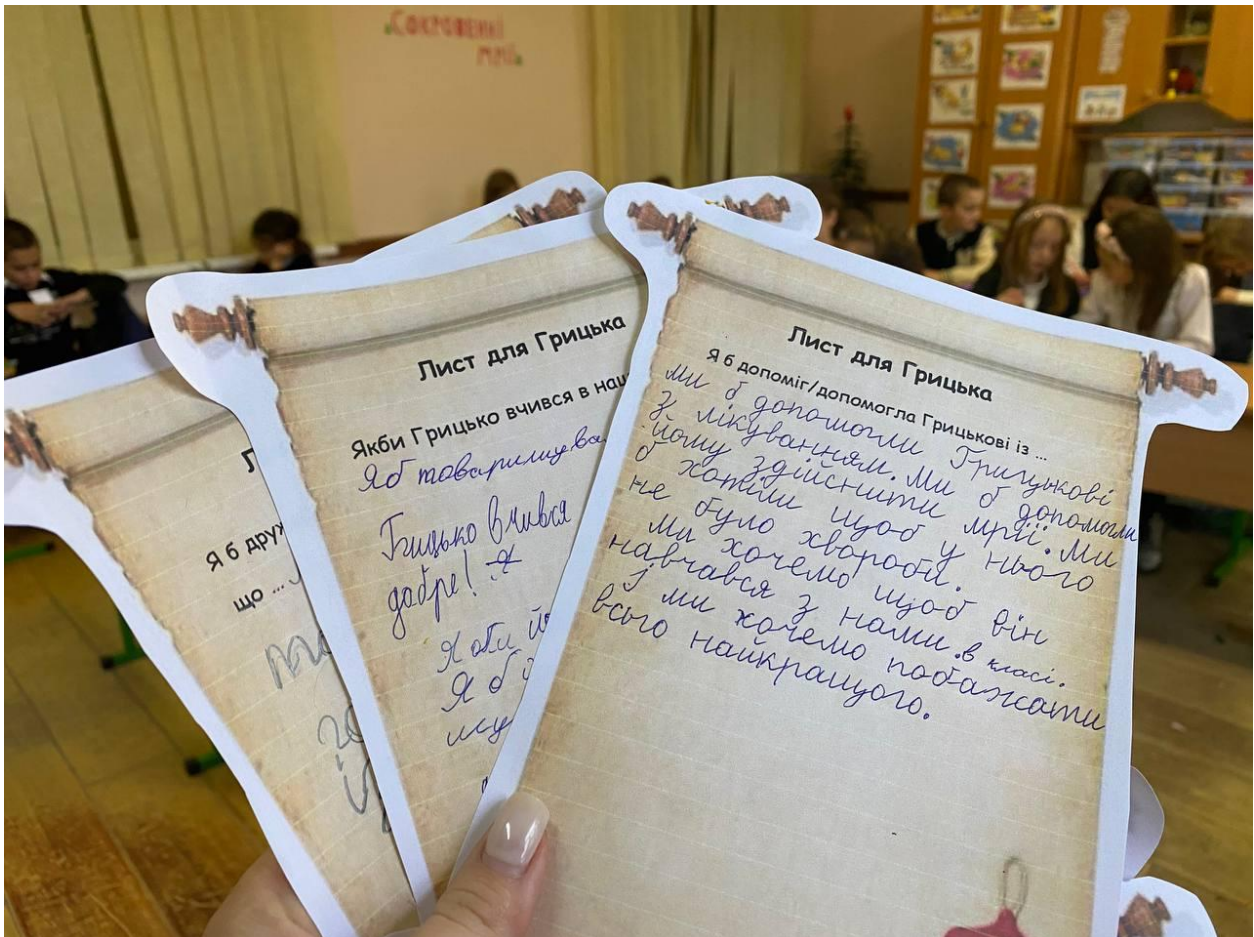 СОКРОВЕННІ
МРІЇ
Лист для Грицька
Я б друж
що ...
Лист для Грицька
Якби Грицько вчився в наш
Я б товаришував
Грицько вчився
добре! Я
Я б
Лист для Грицька
Я б допоміг/допомогла Грицькові із ...
Ми б допомогли Грицькові
з лікуванням. Ми б допомогли
йому здійснити мрії. Ми
б хотіли щоб у нього
не було хвороби.
Ми хочемо щоб він
навчався з нами в класі.
І ми хочемо побажати
всього найкращого.